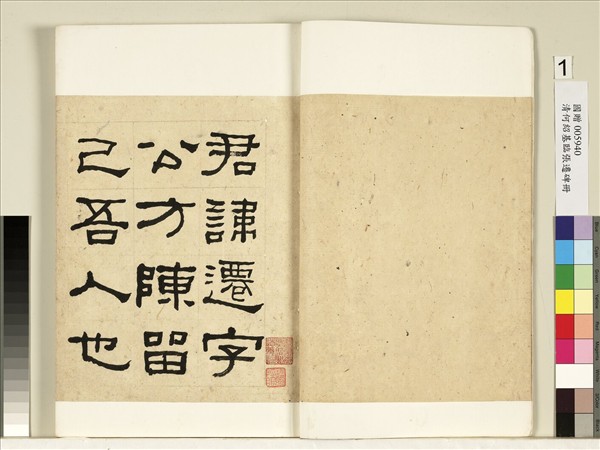 君諱遷字
公方陳留
己吾人也
1
國贈 005940
清何紹基臨張遷碑冊